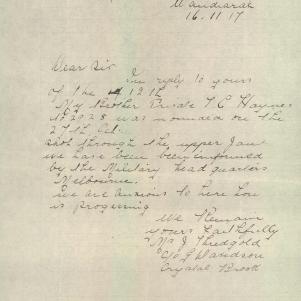 Wandiarah
16.11.17
Dear Sir
In reply to yours
of the 12th
My Brother Private T C Haynes
No 2028 was wounded on the
27th Oct.
shot through the upper Jaw
we have been been informed
by the Military head quarters
Melbourne.
we are anxious to here how
is progressing
We Remain
yours Faithfully
Mrs J Thredgold
C/o G Davidson
Crystal Brook